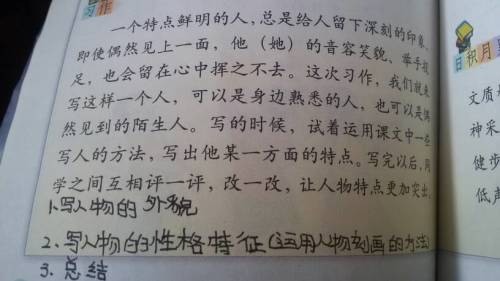 习作
一个特点鲜明的人，总是给人留下深刻的印象，
即使偶然见上一面，他（她）的音容笑貌、举手投
足，也会留在心中挥之不去。这次习作，我们就来
写这样一个人，可以是身边熟悉的人，也可以是偶
然见到的陌生人。写的时候，试着运用课文中一些
写人的方法，写出他某一方面的特点。写完以后，同
学之间互相评一评，改一改，让人物特点更加突出。
1.写人物的外貌
2、写人物的性格特征(运用人物刻画的方法)
3.总结
日积月
文质
神采
健步
低声